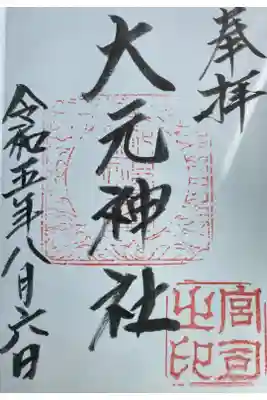 奉拝
大元神社
令和五年八月六日
宮司之印